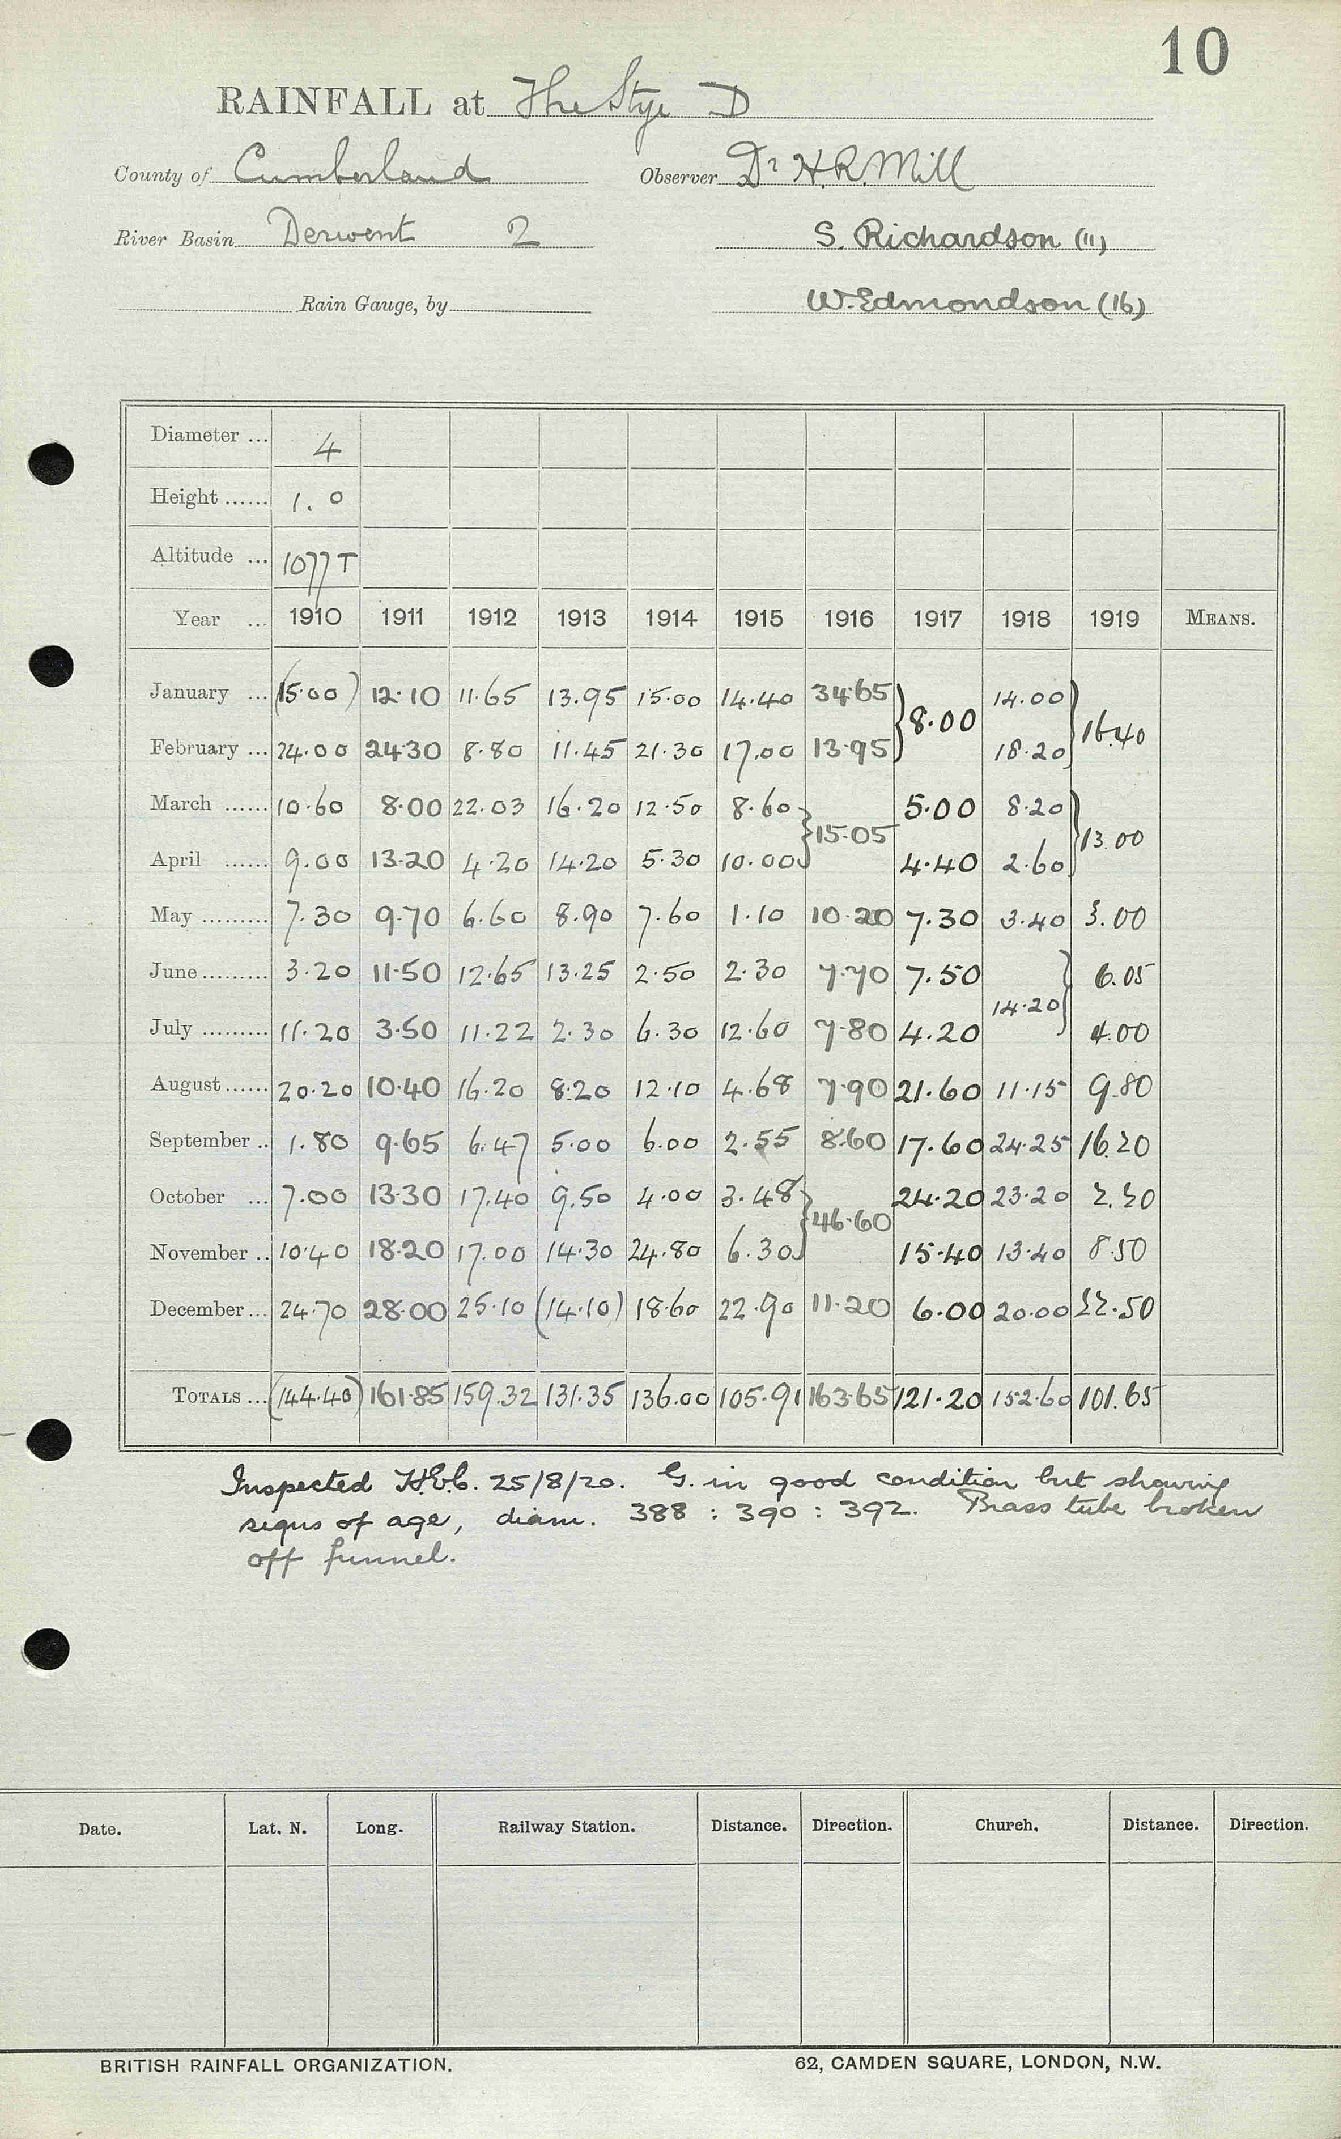 10
RAINFALL at The Stye D
County of Cumberland Observer Dr H.R. Mill
River Basin Derwent 2 S. Richardson (11)
Rain Gauge, by W. Edmondson (16)
Diameter ... 4
Height ...... 1.0
Altitude ... 1077 T
Year ... 1910 1911 1912 1913 1914 1915 1916 1917 1918 1919 MEANS.
January ... (15.00) 12.10 11.65 13.95 15.00 14.40 34.65 } 8.00 14.00 } 16.40
February ... 24.00 24.30 8.80 11.45 21.30 17.00 13.95 18.20
March ...... 10.60 8.00 22.03 16.20 12.50 8.60 } 15.05 5.00 8.20 } 13.00
April ...... 9.00 13.20 4.20 14.20 5.30 10.00 4.40 2.60
May ......... 7.30 9.70 6.60 8.90 7.60 1.10 10.20 7.30 3.40 3.00
June ......... 3.20 11.50 12.65 13.25 2.50 2.30 7.70 7.50 14.20 } 6.05
July ......... 11.20 3.50 11.22 2.30 6.30 12.60 7.80 4.20 4.00
August ...... 20.20 10.40 16.20 8.20 12.10 4.68 7.90 21.60 11.15 9.80
September .. 1.80 9.65 6.47 5.00 6.00 2.55 8.60 17.60 24.25 16.20
October ... 7.00 13.30 17.40 9.50 4.00 3.48 } 46.60 24.20 23.20 2.20
November .. 10.40 18.20 17.00 14.30 24.80 6.30 15.40 13.40 8.50
December ... 24.70 28.00 25.10 (14.10) 18.60 22.90 11.20 6.00 20.00 22.50
TOTALS ... (144.40) 161.85 159.32 131.35 136.00 105.91 163.65 121.20 152.60 101.65
Inspected 25/8/20. G. in good condition but showing
signs of age, diam. 388 : 390 : 392. Brass tube broken
off funnel.
Date. Lat. N. Long. Railway Station. Distance. Direction. Church. Distance. Direction.
BRITISH RAINFALL ORGANIZATION. 62, CAMDEN SQUARE, LONDON, N.W.